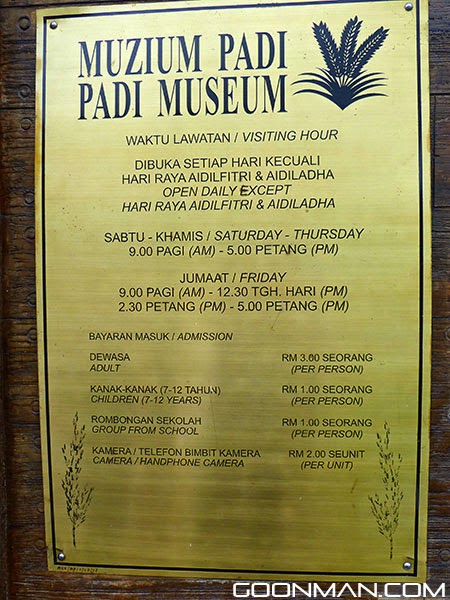 MUZIUM PADI
PADI MUSEUM
WAKTU LAWATAN / VISITING HOUR
DIBUKA SETIAP HARI KECUALI
HARI RAYA AIDILFITRI & AIDILADHA
OPEN DAILY EXCEPT
HARI RAYA AIDILFITRI & AIDILADHA
SABTU - KHAMIS / SATURDAY - THURSDAY
9.00 PAGI (AM) - 5.00 PETANG (PM)
JUMAAT / FRIDAY
9.00 PAGI (AM) - 12.30 TGH. HARI (PM)
2.30 PETANG (PM) - 5.00 PETANG (PM)
BAYARAN MASUK / ADMISSION
DEWASA RM 3.00 SEORANG
ADULT (PER PERSON)
KANAK-KANAK (7-12 TAHUN) RM 1.00 SEORANG
CHILDREN (7-12 YEARS) (PER PERSON)
ROMBONGAN SEKOLAH RM 1.00 SEORANG
GROUP FROM SCHOOL (PER PERSON)
KAMERA / TELEFON BIMBIT KAMERA RM 2.00 SEUNIT
CAMERA / HANDPHONE CAMERA (PER UNIT)
GOONMAN.COM